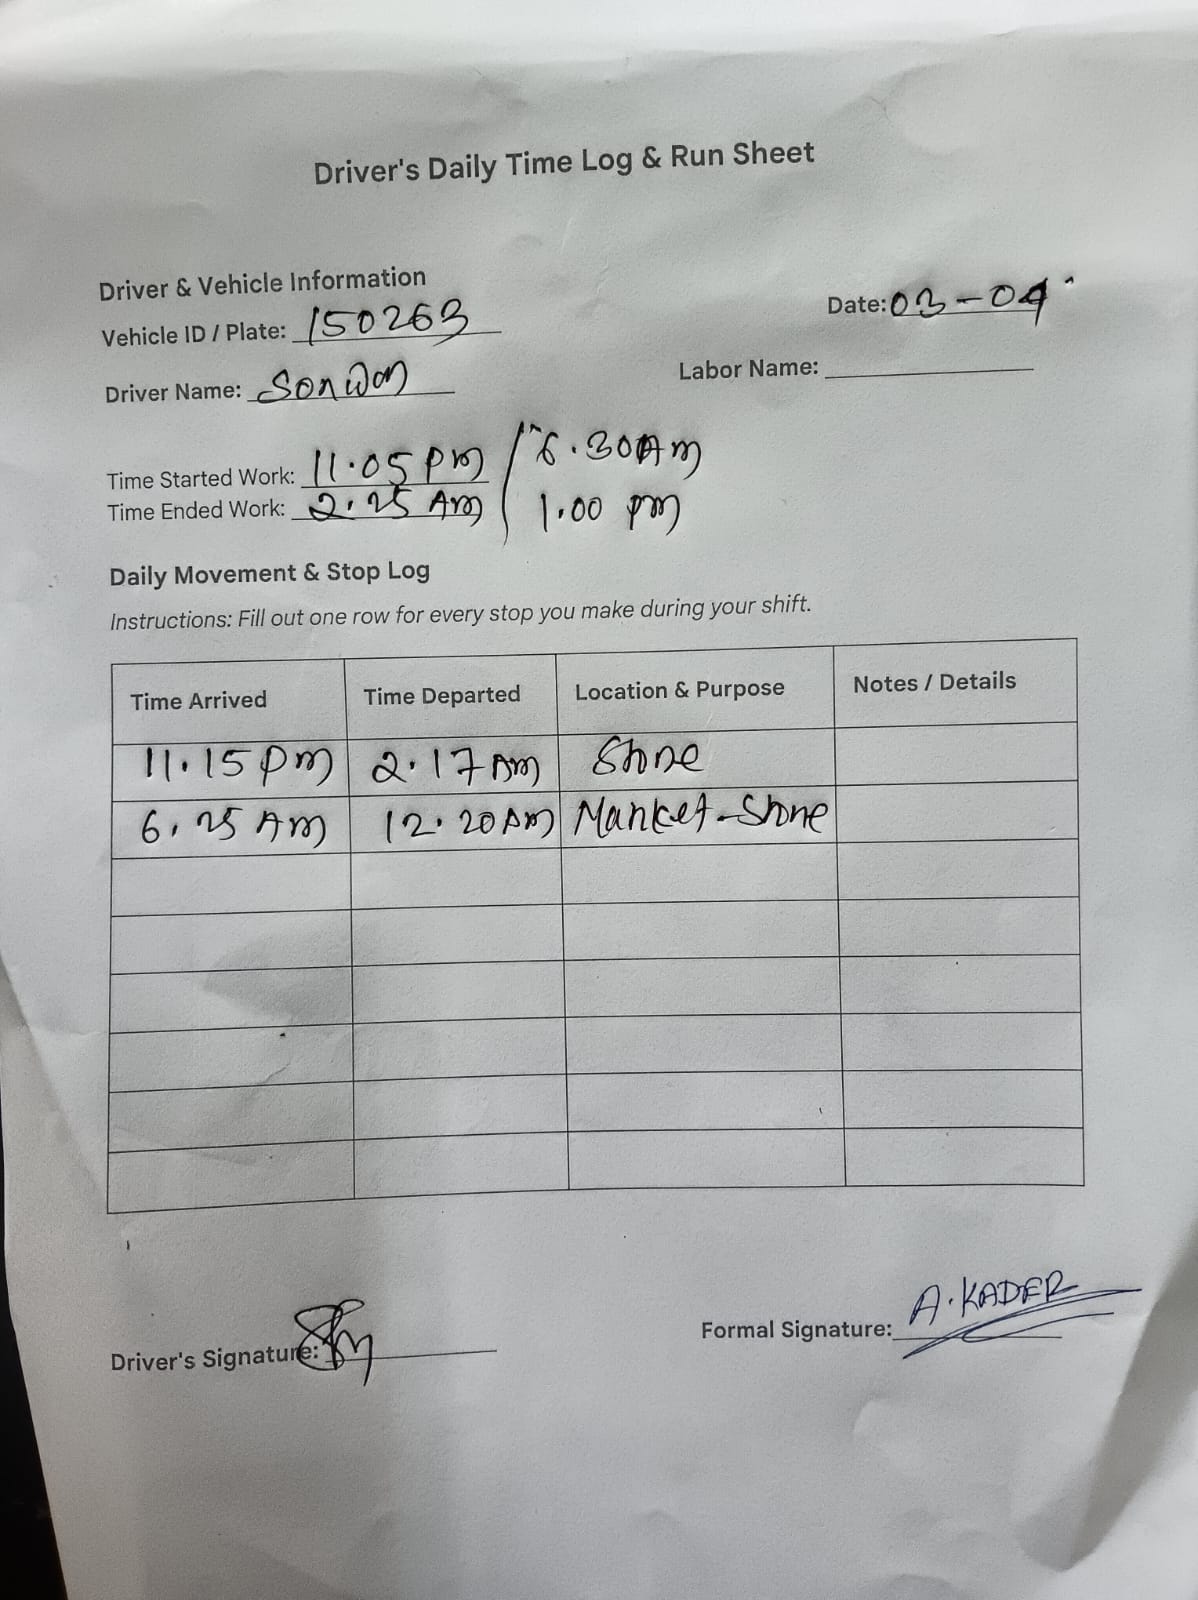 Driver's Daily Time Log & Run Sheet
Driver & Vehicle Information
Vehicle ID / Plate: 150263
Date: 03-04
Driver Name:
Labor Name:
Time Started Work: 11.05 pm / 6.30 Am
Time Ended Work: 2.25 Am / 1.00 pm
Daily Movement & Stop Log
Instructions: Fill out one row for every stop you make during your shift.
Time Arrived Time Departed Location & Purpose Notes / Details
11.15 pm 2.17 Am Store
6.25 Am 12.20 Am Market-Store
Formal Signature: A.KADER
Driver's Signature: